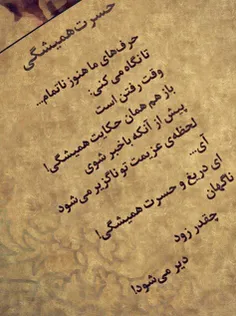 حسرت همیشگی
حرف‌های ما هنوز ناتمام...
تا نگاه می کنی:
وقت رفتن است
باز هم همان حکایت همیشگی!
پیش از آنکه باخبر شوی
لحظه‌ی عزیمت تو ناگزیر می‌شود
آی...
ای دریغ و حسرت همیشگی!
ناگهان
چقدر زود
دیر می‌شود!